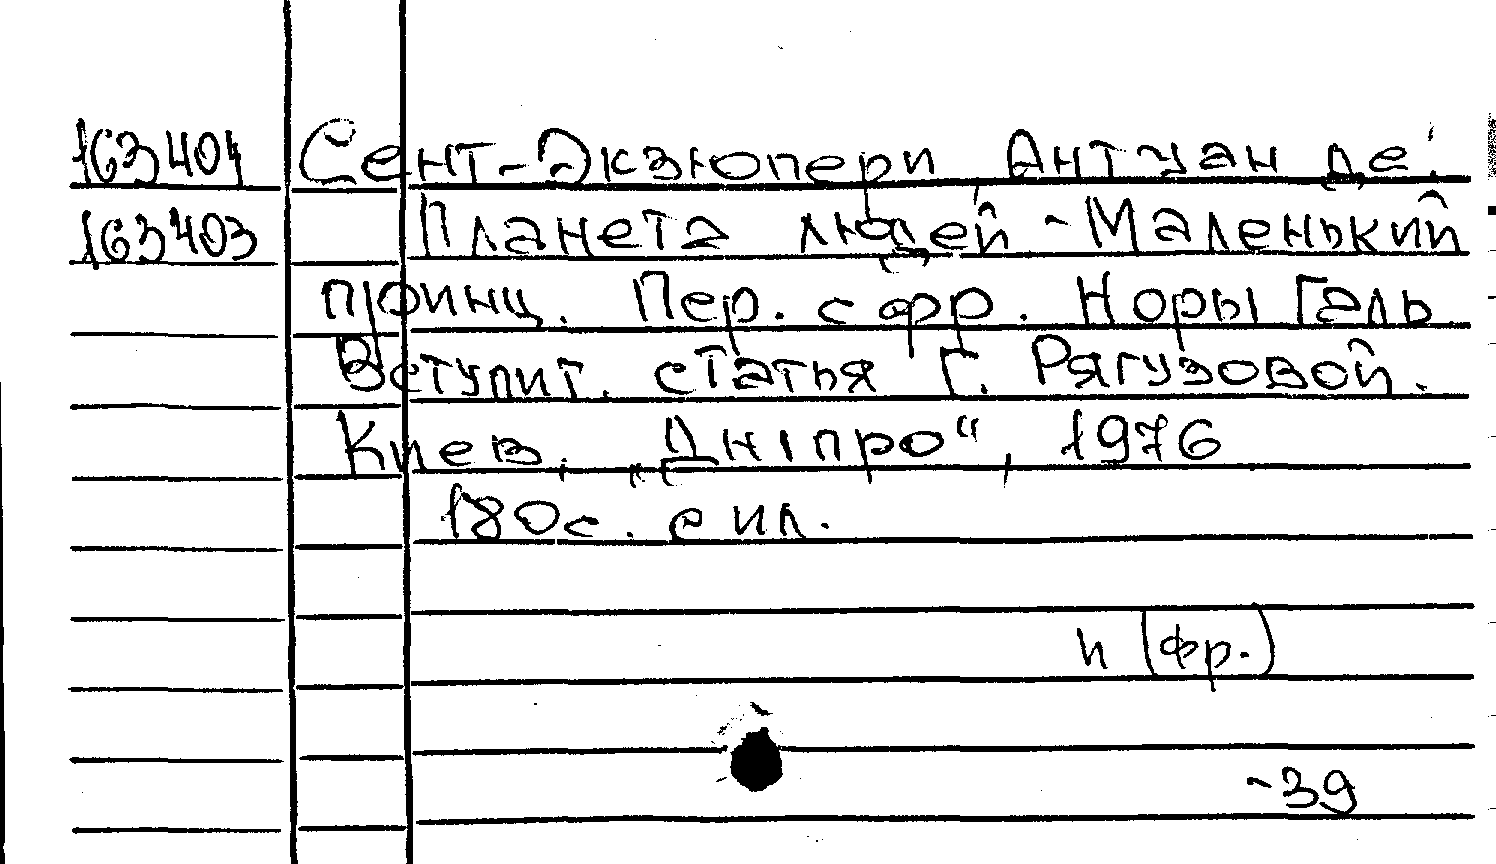 163401 Сент-Экзюпери Антуан де.
163403 Планета людей - Маленький
принц. Пер. с фр. Норы Галь
Вступит. статья Г. Рягузовой.
Киев, „Дніпро“, 1976
180с. с ил.
и (фр.)
-39